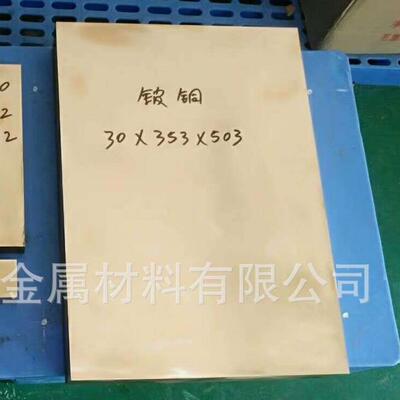 铍铜
30X353X503
0
2
2
金属材料有限公司